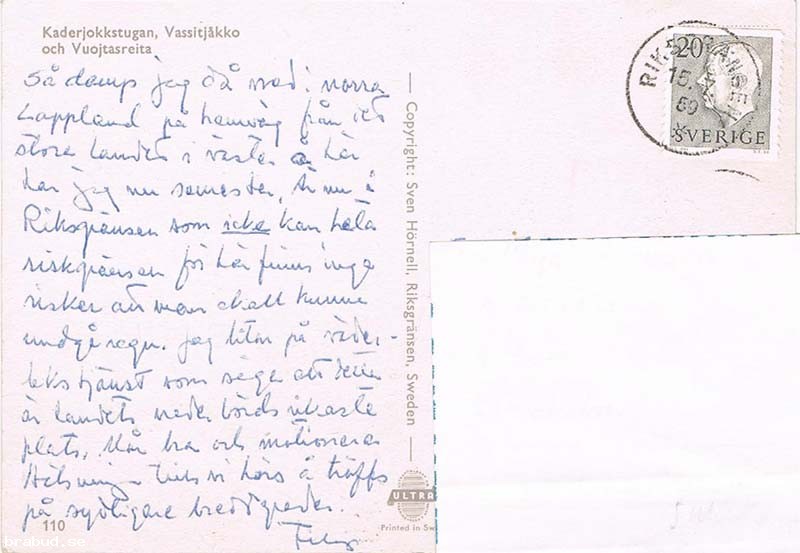 Kaderjokkstugan, Vassitjåkko
och Vuojtasreita
Så damp jag då ned i norra
Lappland på hemväg från det
stora landet i väster å här
har jag nu semester. Är nu i
Riksgränsen som icke kan heta
riskgränsen för här finns inga
risker att man skall kunna
undgå regn. Jag litar på väder-
lekstjänst som säger att detta
är landets nederbördsrikaste
plats. Mår bra och motionerar
Hälsningar tills vi hörs å träffs
på sydligare breddgrader.
110
Copyright: Sven Hörnell, Riksgränsen, Sweden
ULTRA
Printed in Sw
RIKSGRÄNSEN
15.
59
20
SVERIGE
brabud.se